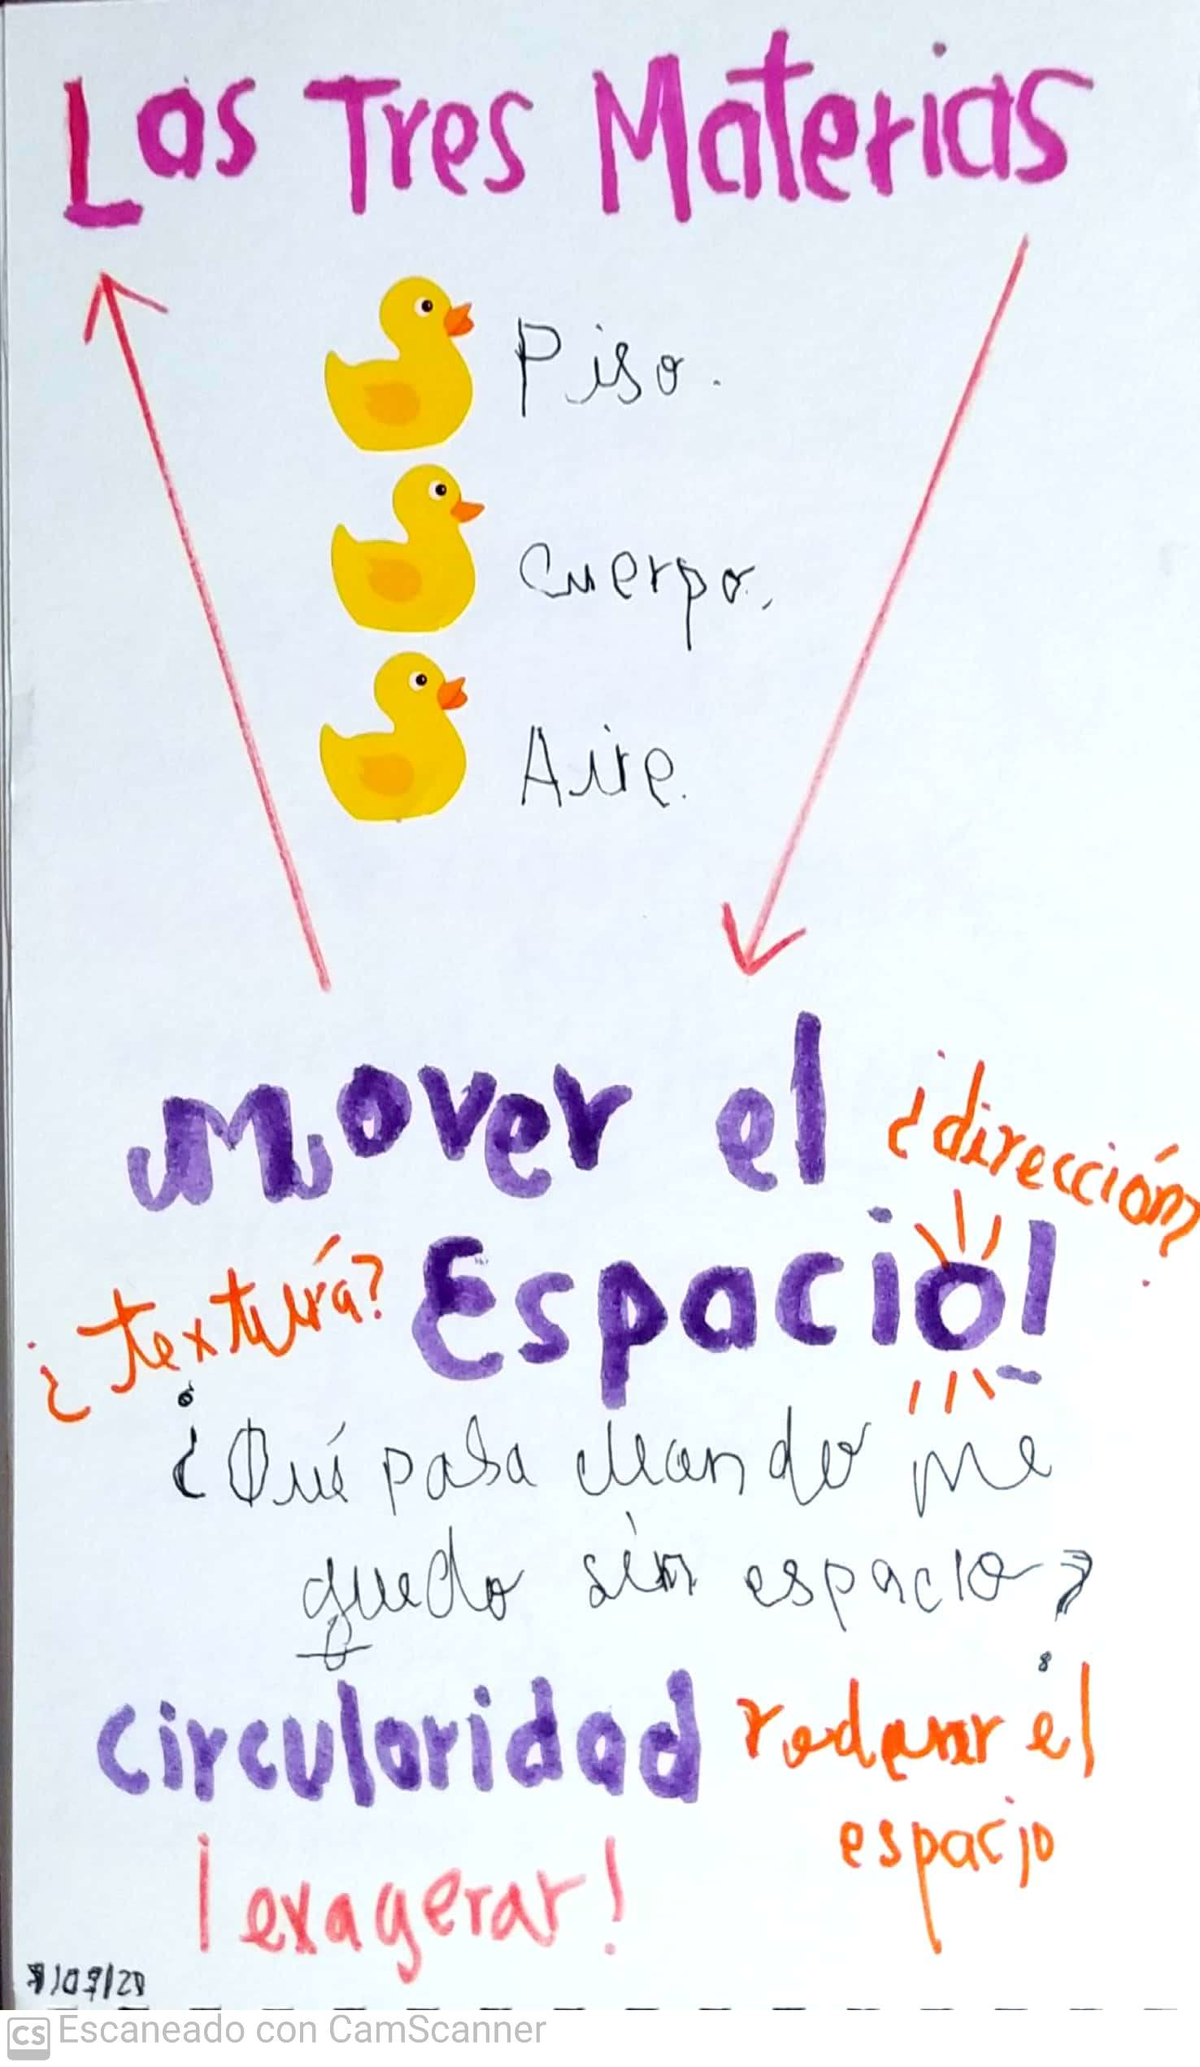 Las Tres Materias
Piso.
Cuerpo.
Aire.
Mover el
¿dirección?
¿textura?
Espacio!
¿Qué pasa cuando me
quedo sin espacio?
circularidad
rodear el
espacio
¡exagerar!
CS Escaneado con CamScanner